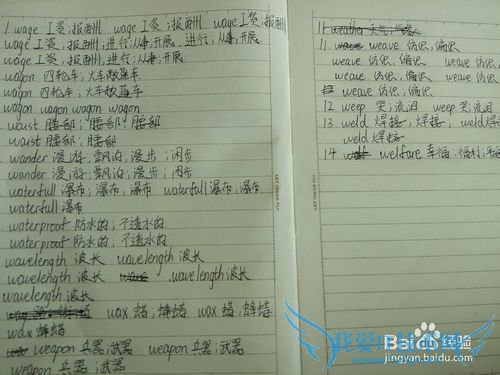 1. wage 工资;报酬 wage 工资;报酬 wage 工资;报酬
wage 工资;报酬,进行;从事,开展,进行;从事,开展.
wage 工资;报酬,进行;从事,开展
wagon 四轮车;火车敞篷车
wagon 四轮车;火车敞篷车
wagon wagon wagon wagon
waist 腰部;腰部;腰部
waist 腰部;腰部
wander 漫游;飘泊;漫步;闲步
wander 漫游;飘泊;漫步;闲步
waterfull 瀑布;瀑布,瀑布 waterfull 瀑布,瀑布
waterfull 瀑布
waterproof 防水的;不透水的
waterproof 防水的;不透水的
wavelength 波长 wavelength 波长
wavelength 波长 wave wavelength 波长
wavelength 波长
wax 蜡;蜂蜡 wax 蜡;蜂蜡
wax 蜂蜡
weapon 兵器;武器 weapon 兵器;武器
weapon 兵器;武器
11 weather 天气
11 weave 纺织,编织
weave 纺织,编织 weave 纺织
weave 纺织,编织 weave 纺织
weave 纺织,编织
12 weep 哭;流泪 weep 哭;流泪
13 weld 焊接,焊接; weld 焊接
weld 焊接
14 welfare 幸福;福利
LET IDEAS FLY
Baidu 经验
jingyan.baidu.com